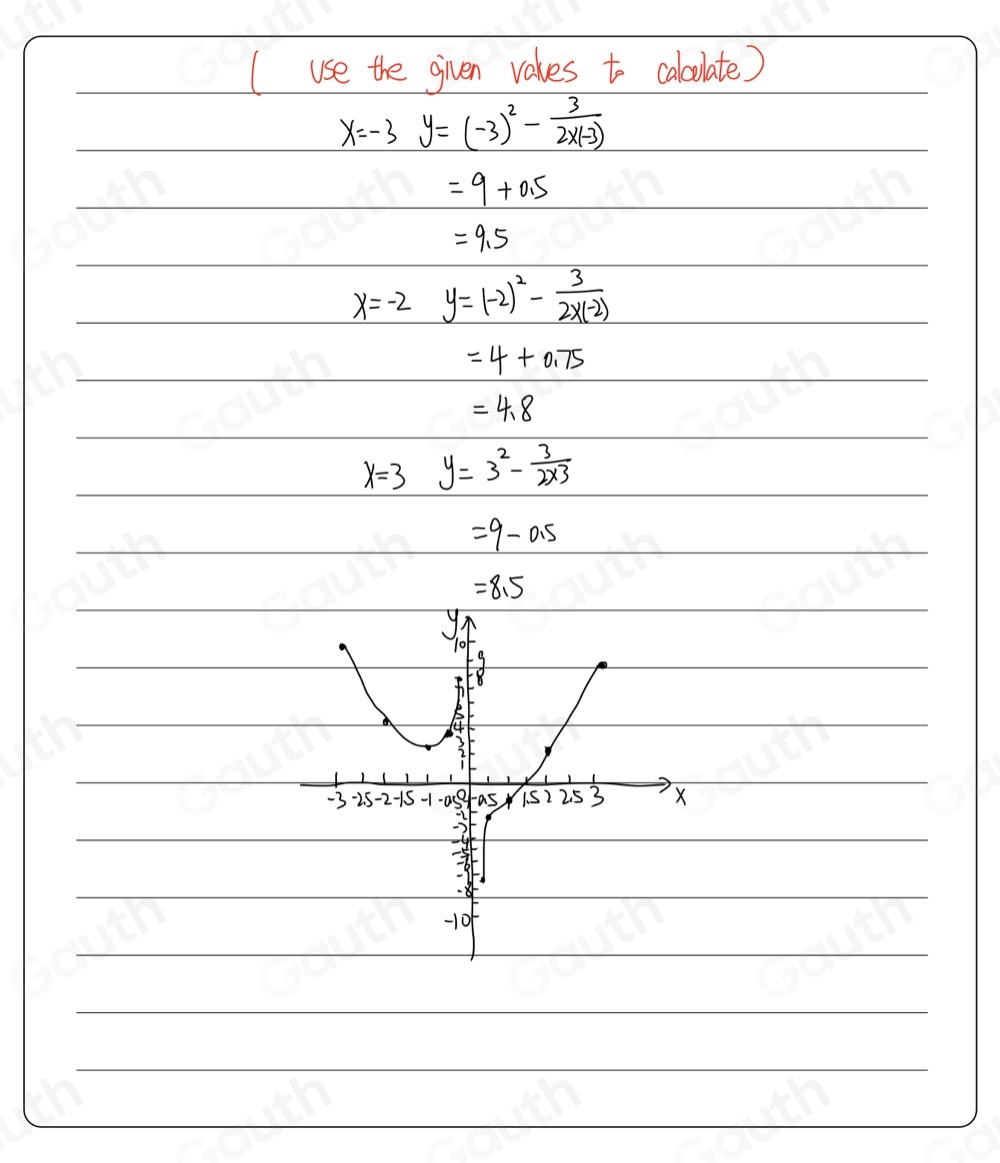 ( use the given values to calculate)
x=-3 y= (-3)² - 3/(2×(-3))
= 9 + 0.5
= 9.5
x=-2 y= (-2)² - 3/(2×(-2))
= 4 + 0.75
= 4.8
x=3 y= 3² - 3/(2×3)
=9 - 0.5
=8.5
y
10
9
8
4
3
2
1
-3 -2.5 -2 -1.5 -1 -0.5 0.5 1.5 2 2.5 3 x
-8
-10